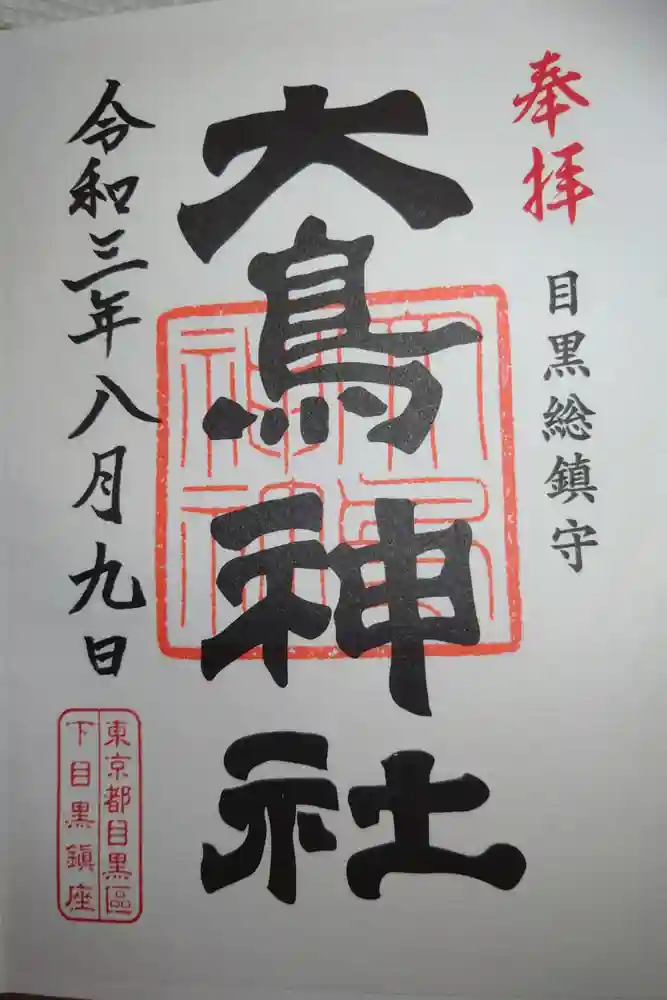 奉拝
目黒総鎮守
大鳥神社
大鳥神社
令和三年八月九日
東京都目黒區
下目黒鎮座